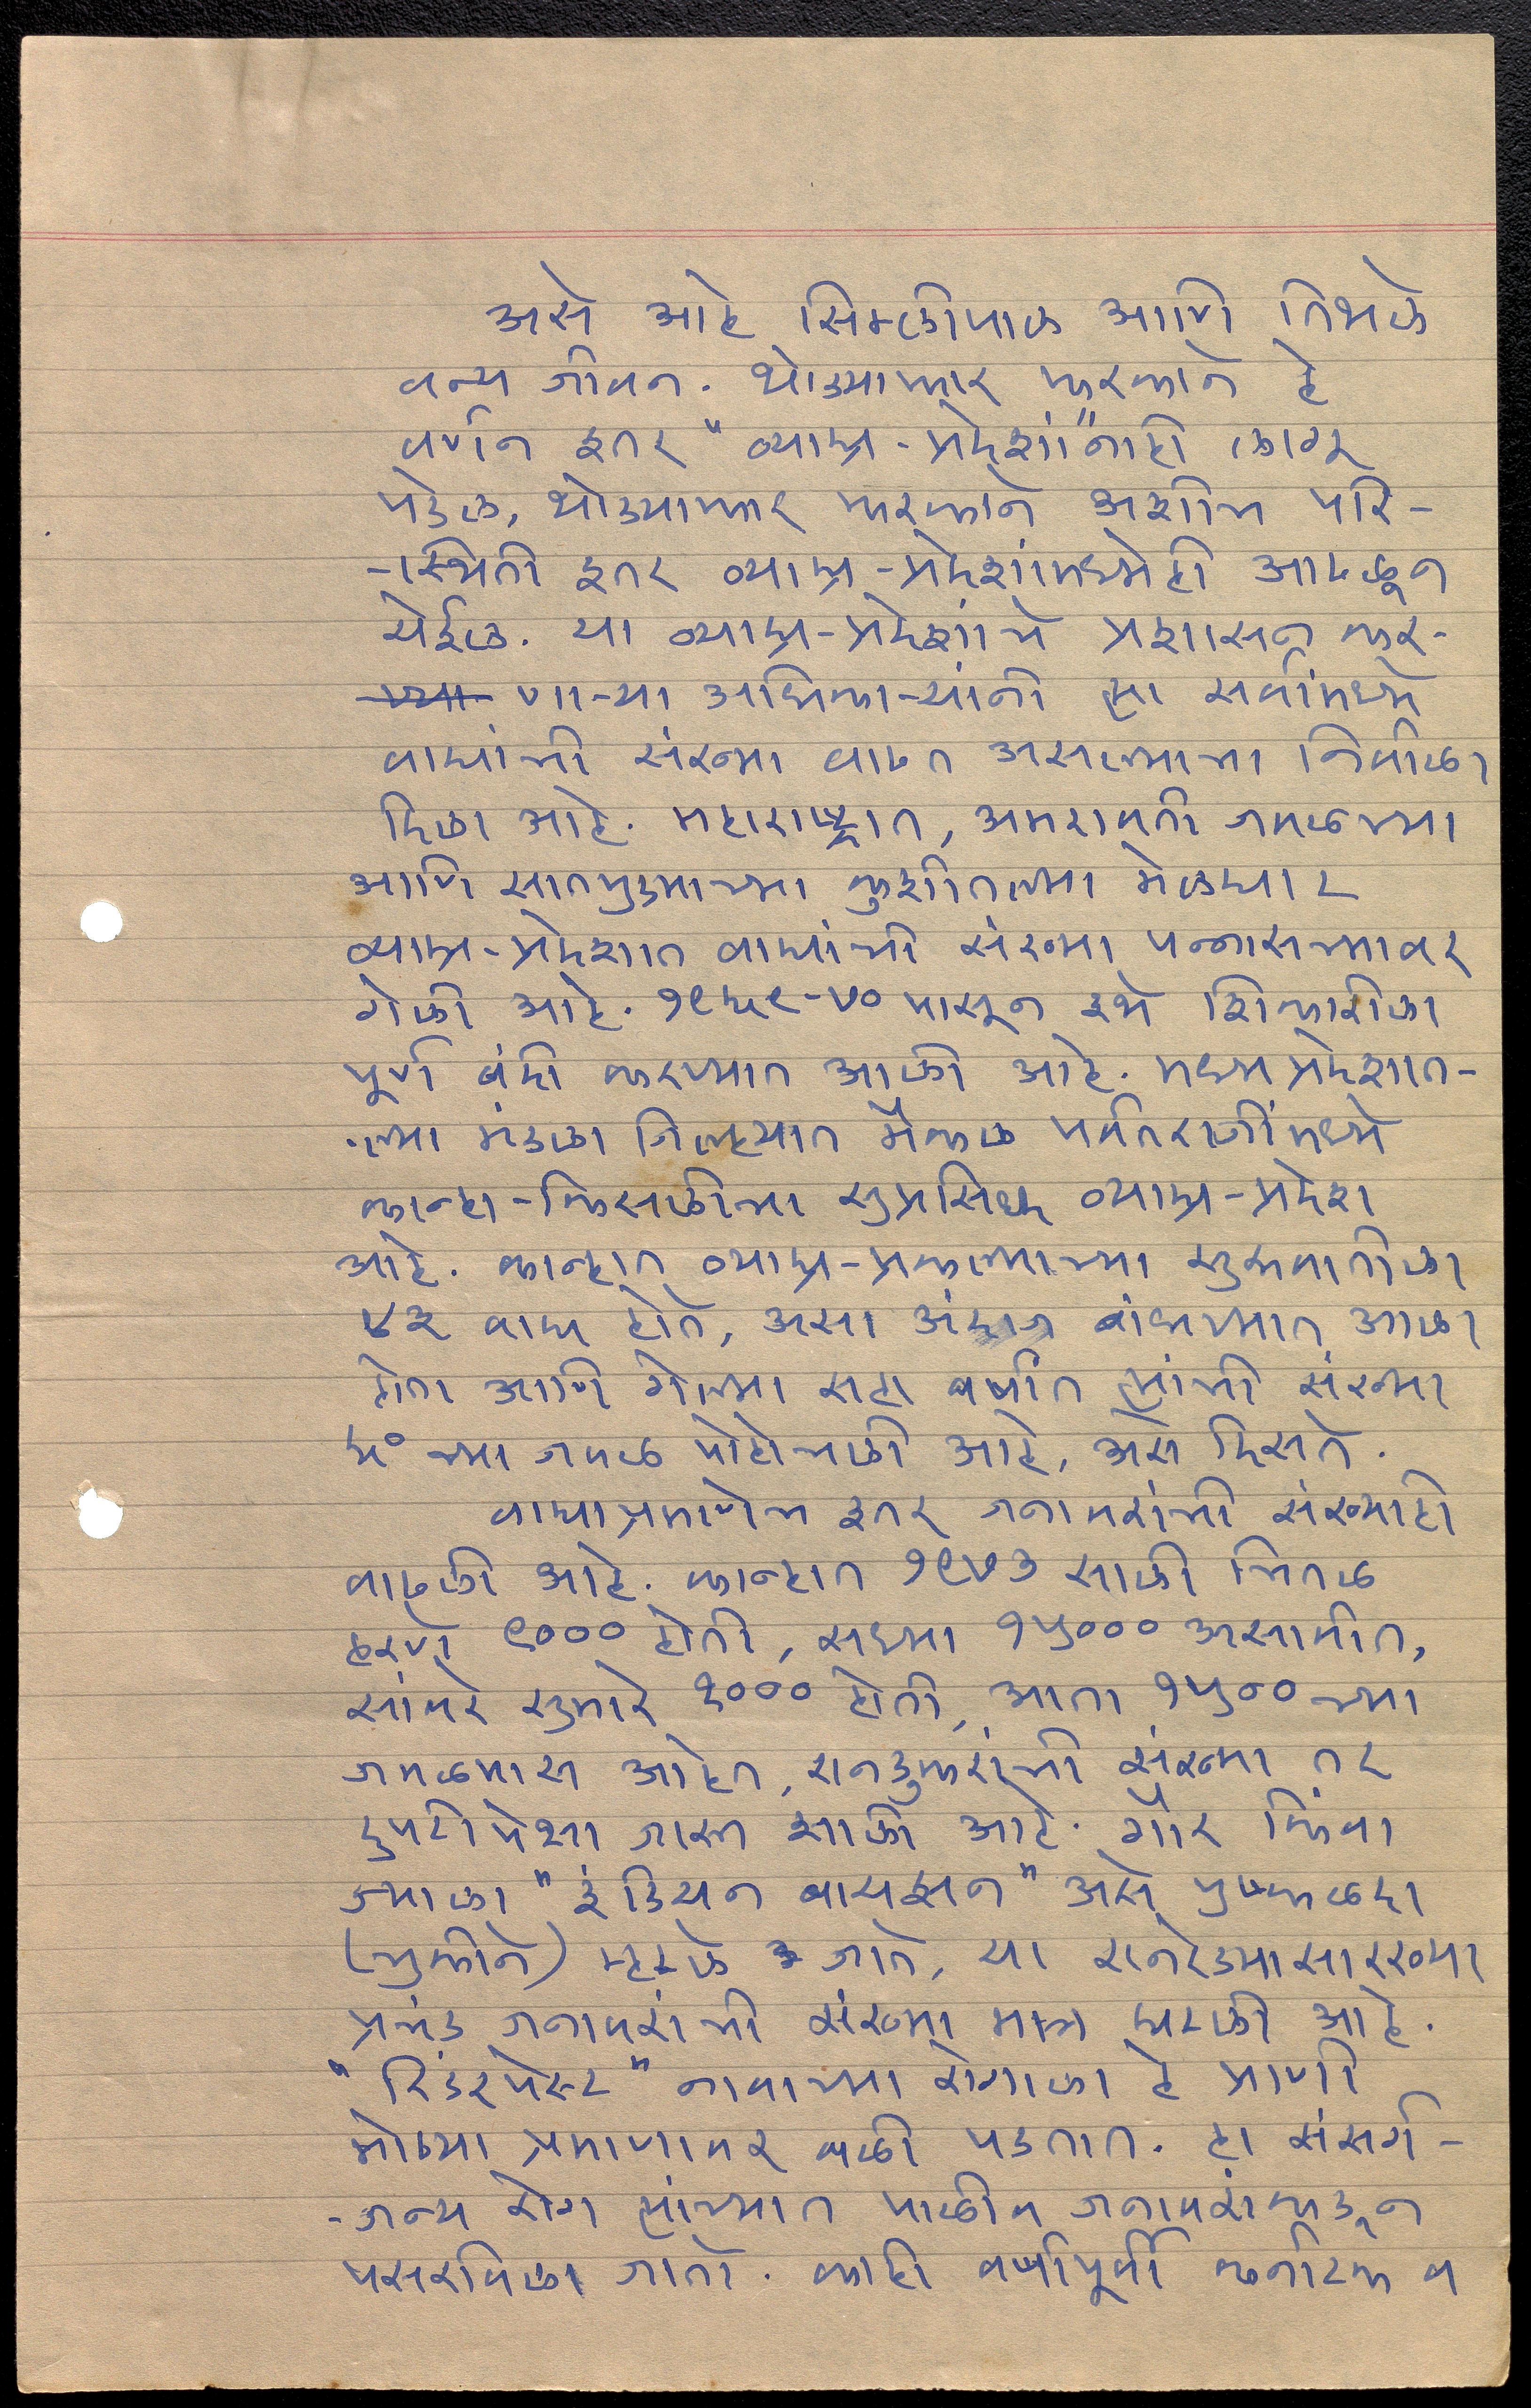 असे आहे सिमलीपाल आणि तिथले
वन्य जीवन. थोड्याफार फरकाने हे
वर्णन इतर "व्याघ्र-प्रदेशां"नाही लागू
पडेल, थोड्याफार फरकाने अशीच परि-
-स्थिती इतर व्याघ्र-प्रदेशांमध्येही आढळून
येईल. या व्याघ्र-प्रदेशांचे प्रशासन कर-
णाऱ्या अधिकाऱ्यांनी ह्या सर्वांमध्ये
वाघांची संख्या वाढत असल्याचा निर्वाळा
दिला आहे. महाराष्ट्रात, अमरावती जवळच्या
आणि सातपुड्याच्या कुशीतल्या मेळघाट
व्याघ्र-प्रदेशात वाघांची संख्या पन्नासच्यावर
गेली आहे. १९६९-७० पासून इथे शिकारीला
पूर्ण बंदी करण्यात आली आहे. मध्यप्रदेशात-
-ल्या मंडला जिल्ह्यात मैकल पर्वतराजींमध्ये
कान्हा-किसलीचा सुप्रसिध्द व्याघ्र-प्रदेश
आहे. कान्हात व्याघ्र-प्रकल्पाच्या सुरुवातीला
४३ वाघ होते, असा अंदाज बांधण्यात आला
होता आणि गेल्या सहा वर्षांत त्यांची संख्या
६० च्या जवळ पोहोचली आहे, असे दिसते.
वाघाप्रमाणेच इतर जनावरांची संख्याही
वाढली आहे. कान्हात १९७३ साली चितळ
हरणे ९००० होती, सध्या १५००० असावीत,
सांबरे सुमारे १००० होती, आता १५०० च्या
जवळपास आहेत, रानडुकरांची संख्या तर
दुपटीपेक्षा जास्त झाली आहे. गौर किंवा
ज्याला "इंडियन बायसन" असे पुष्कळदा
(चुकीने) म्हटले जाते, या रानरेड्यासारख्या
प्रचंड जनावरांची संख्या मात्र घटली आहे.
"रिंडरपेस्ट" नावाच्या रोगाला हे प्राणी
मोठ्या प्रमाणावर बळी पडतात. हा संसर्ग-
-जन्य रोग त्यांच्यात पाळीव जनावरांकडून
पसरविला जातो. काही वर्षांपूर्वी कर्नाटक व